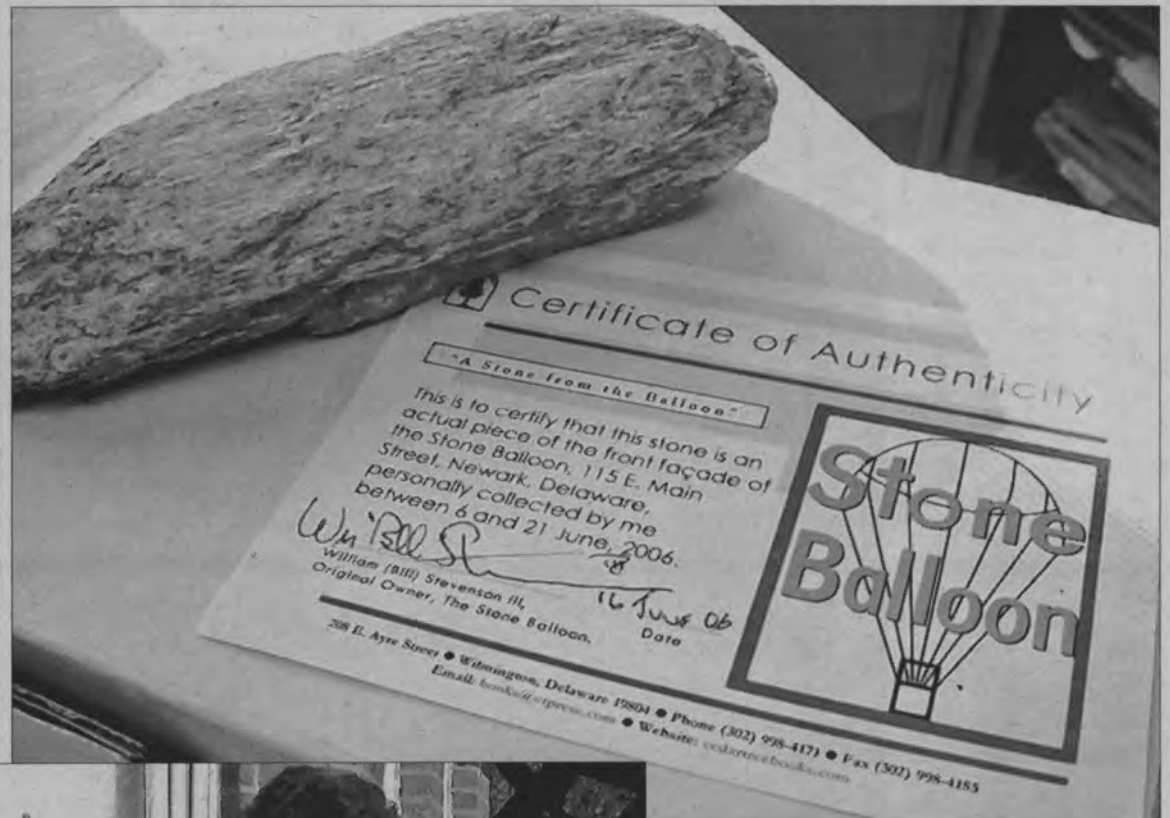 Certificate of Authenticity
"A Stone from the Balloon"
This is to certify that this stone is an
actual piece of the front façade of
the Stone Balloon, 115 E. Main
Street, Newark, Delaware,
personally collected by me
between 6 and 21 June, 2006.
16 June 06
William (Bill) Stevenson III,
Original Owner, The Stone Balloon.
Date
Stone
Balloon
208 E. Ayre Street ● Wilmington, Delaware 19804 ● Phone (302) 998-4171 ● Fax (302) 998-4185
Email: ● Website: cedartreebooks.com